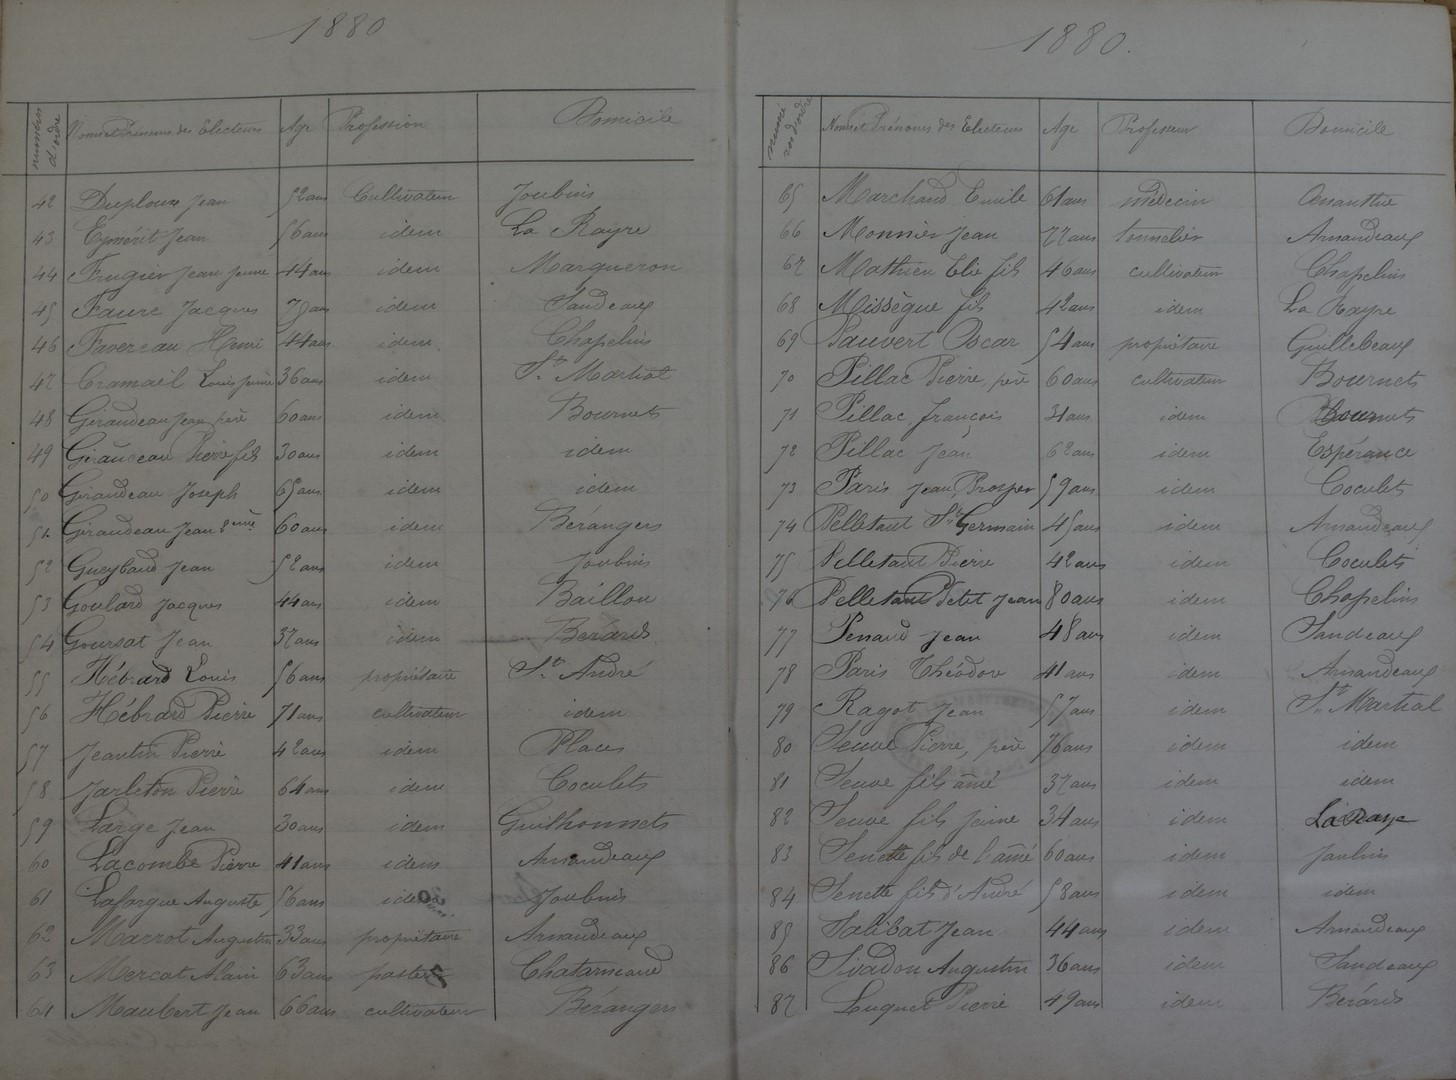 1880
numéros d'ordre Noms et Prénoms des Electeurs Age Profession Domicile
42 Duploux Jean 52 ans Cultivateur Joubinis
43 Eymérit Jean 56 ans idem La Rayre
44 Frugier Jean jeune 44 ans idem Margueron
45 Faure Jacques 75 ans idem Sandeaux
46 Favereau Henri 44 ans idem Chapelins
47 Cramail Louis jeune 36 ans idem St Martial
48 Giraudeau Jean père 60 ans idem Bournets
49 Giraudeau Pierre fils 30 ans idem idem
50 Giraudeau Joseph 65 ans idem idem
51 Giraudeau Jean 60 ans idem Bérangers
52 Gueybaud Jean 52 ans idem Joubinis
53 Goulard Jacques 44 ans idem Baillou
54 Goursat Jean 37 ans idem Bérards
55 Hébrard Louis 56 ans propriétaire St André
56 Hébrard Pierre 71 ans cultivateur idem
57 Jeantin Pierre 42 ans idem Places
58 Jarleton Pierre 64 ans idem Coculets
59 Large Jean 30 ans idem Guilhonnets
60 Lacombe Pierre 41 ans idem Arnaudeaux
61 Lafargue Auguste 56 ans idem Joubinis
62 Marrot Augustin 33 ans propriétaire Arnaudeaux
63 Mercat Alain 63 ans pasteur
64 Maubert Jean 66 ans cultivateur Bérangers
1880.
Noms et Prénoms des Electeurs Age Profession Domicile
65 Marchand Emile 61 ans médecin
66 Monnier Jean 77 ans tonnelier Arnaudeaux
67 Mathieu Elie fils 46 ans cultivateur Chapelins
68 Missègue fils 42 ans idem La Rayre
69 Pauvert Oscar 54 ans propriétaire Guillebeaux
70 Pillac Pierre, père 60 ans cultivateur Bournets
71 Pillac, françois 31 ans idem Bournets
72 Pillac Jean 62 ans idem Espérance
73 Paris Jean Prosper 59 ans idem Coculets
74 Pelletant St Germain 45 ans idem Arnaudeaux
75 Pelletant Pierre 42 ans idem Coculets
76 Pelletant Petit Jean 80 ans idem Chapelins
77 Penaud Jean 48 ans idem Sandeaux
78 Paris Théodore 41 ans idem Arnaudeaux
79 Ragot Jean 57 ans idem St Martial
80 Seuve Pierre, père 76 ans idem idem
81 Seuve fils aîné 37 ans idem idem
82 Seuve fils jeune 34 ans idem La Raye
83 Senette fils de l'aîné 60 ans idem
84 Senette fils d'André 58 ans idem idem
85 Salibat Jean 44 ans idem Arnaudeaux
86 Sivadon Augustin 36 ans idem Sandeaux
87 Luquet Pierre 49 ans idem Bérards